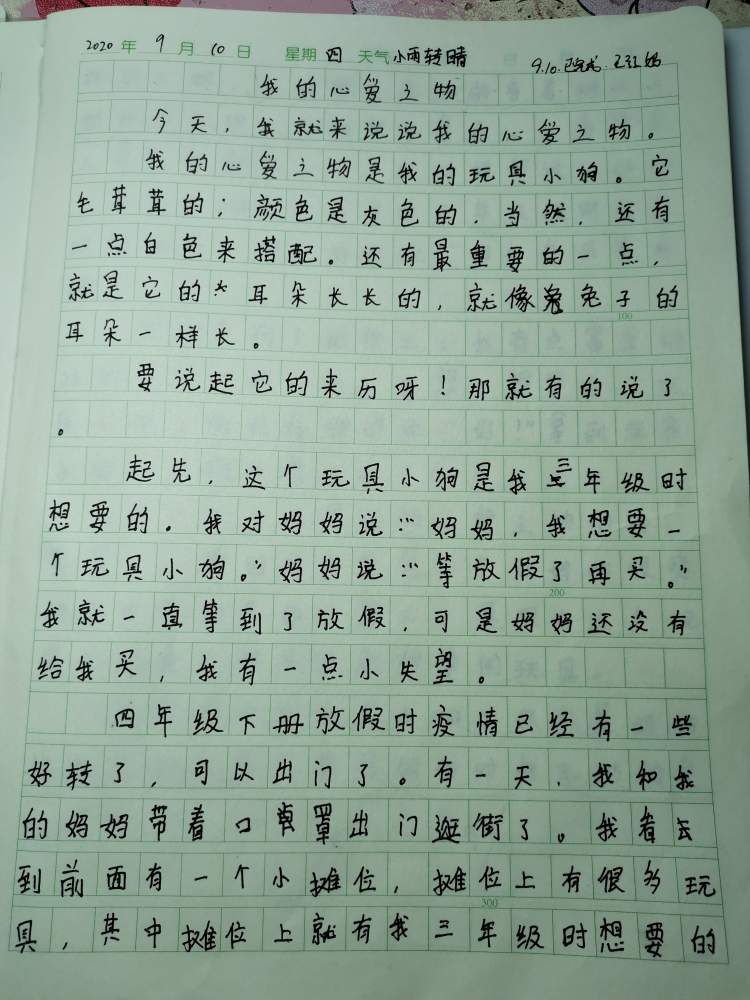 2020年 9月 10日 星期 四 天气 小雨转晴 9.10.已完成.
我的心爱之物
今天，我就来说说我的心爱之物。
我的心爱之物是我的玩具小狗。它
毛茸茸的；颜色是灰色的，当然，还有
一点白色来搭配。还有最重要的一点，
就是它的耳朵长长的，就像兔子的
100
耳朵一样长。
要说起它的来历呀！那就有的说了
。
起先，这个玩具小狗是我三年级时
想要的。我对妈妈说：“妈妈，我想要一
个玩具小狗。”妈妈说：“等放假了再买。”
200
我就一直等到了放假，可是妈妈还没有
给我买，我有一点小失望。
四年级下册放假时疫情已经有一些
好转了，可以出门了。有一天，我和我
的妈妈带着口罩出门逛街了。我看
到前面有一个小摊位，摊位上有很多玩
300
具，其中摊位上就有我三年级时想要的